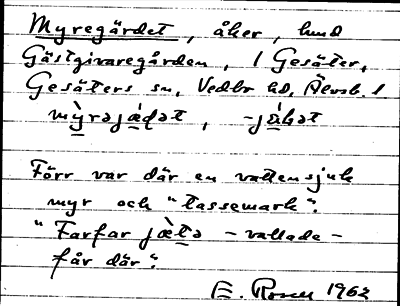 Myregärdet, åker, hmd
Gästgivaregården, 1 Gesäter,
Gesäters sn, Vedbo hd, Älvsb. l
mỳrəjæ̀ḍət, -jǽḍət
Förr var där en vattensjuk
myr och "tassemark".
"Farfar jætə - vallade -
får där".
E. Rosell 1962